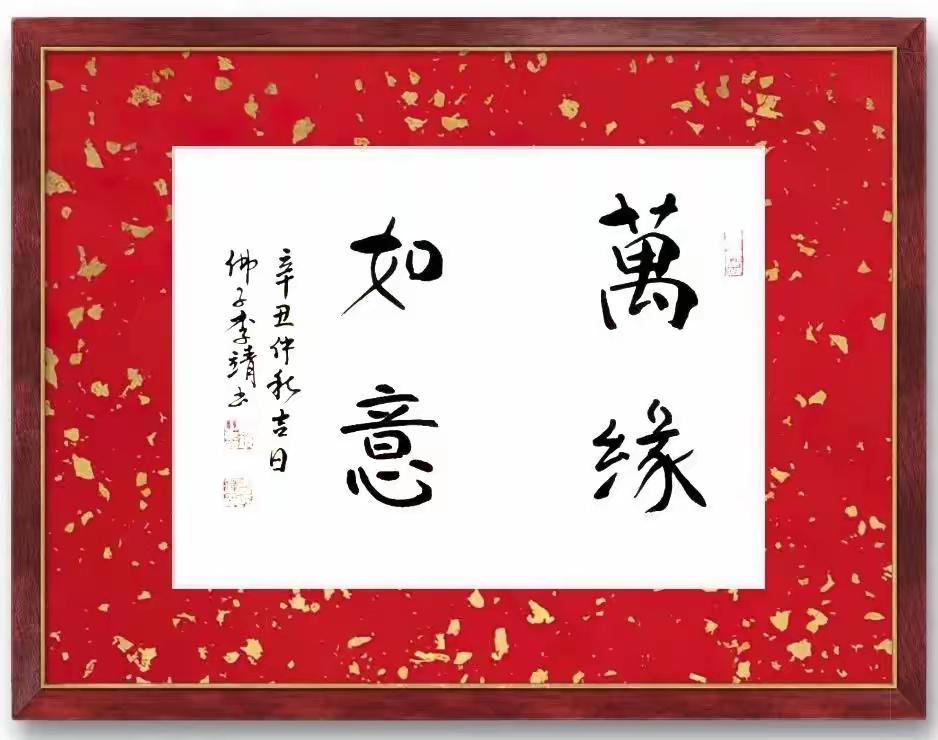 萬緣
如意
辛丑仲秋吉日
佛子李靖书